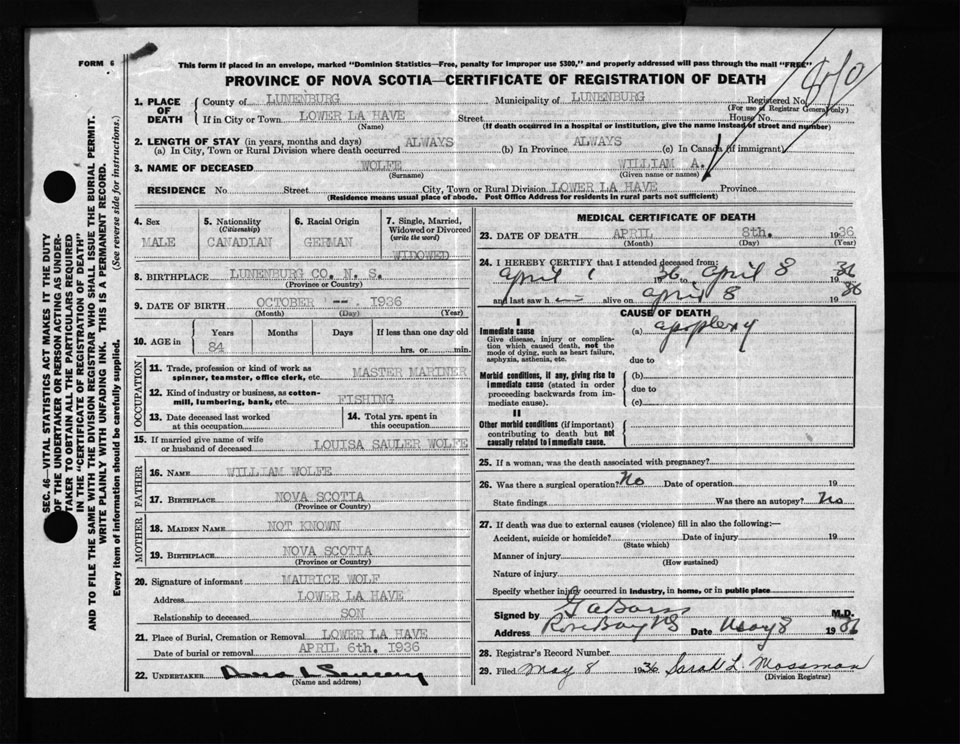 FORM 6
This form if placed in an envelope, marked "Dominion Statistics—Free, penalty for improper use $300," and properly addressed will pass through the mail "FREE"
PROVINCE OF NOVA SCOTIA—CERTIFICATE OF REGISTRATION OF DEATH
SEC. 46—VITAL STATISTICS ACT MAKES IT THE DUTY
OF THE UNDERTAKER OR PERSON ACTING AS UNDER-
TAKER TO OBTAIN ALL THE PARTICULARS REQUIRED
IN THE "CERTIFICATE OF REGISTRATION OF DEATH"
AND TO FILE THE SAME WITH THE DIVISION REGISTRAR WHO SHALL ISSUE THE BURIAL PERMIT.
WRITE PLAINLY WITH UNFADING INK. THIS IS A PERMANENT RECORD.
Every item of information should be carefully supplied. (See reverse side for instructions.)
1. PLACE OF DEATH
County of LUNENBURG Municipality of LUNENBURG Registered No.
(For use of Registrar General only)
If in City or Town LOWER LA HAVE Street House No.
(Name) (If death occurred in a hospital or institution, give the name instead of street and number)
2. LENGTH OF STAY (in years, months and days)
(a) In City, Town or Rural Division where death occurred ALWAYS (b) In Province ALWAYS (c) In Canada (if immigrant)
3. NAME OF DECEASED WOLFE WILLIAM A.
(Surname) (Given name or names)
RESIDENCE No. Street City, Town or Rural Division LOWER LA HAVE Province
(Residence means usual place of abode. Post Office Address for residents in rural parts not sufficient)
4. Sex
MALE
5. Nationality
(Citizenship)
CANADIAN
6. Racial Origin
GERMAN
7. Single, Married,
Widowed or Divorced
(write the word)
WIDOWED
8. BIRTHPLACE LUNENBURG CO. N. S.
(Province or Country)
9. DATE OF BIRTH OCTOBER --. 1936
(Month) (Day) (Year)
10. AGE in
Years Months Days If less than one day old
84 hrs. or min.
OCCUPATION
11. Trade, profession or kind of work as
spinner, teamster, office clerk, etc. MASTER MARINER
12. Kind of industry or business, as cotton-
mill, lumbering, bank, etc. FISHING
13. Date deceased last worked
at this occupation
14. Total yrs. spent in
this occupation
15. If married give name of wife
or husband of deceased LOUISA SAULER WOLFE
FATHER
16. NAME WILLIAM WOLFE
17. BIRTHPLACE NOVA SCOTIA
(Province or Country)
MOTHER
18. MAIDEN NAME NOT KNOWN
19. BIRTHPLACE NOVA SCOTIA
(Province or Country)
20. Signature of informant MAURICE WOLF
Address LOWER LA HAVE
Relationship to deceased SON
21. Place of Burial, Cremation or Removal LOWER LA HAVE
Date of burial or removal APRIL 6th. 1936
22. UNDERTAKER
(Name and address)
MEDICAL CERTIFICATE OF DEATH
23. DATE OF DEATH APRIL 8th. 1936
(Month) (Day) (Year)
24. I HEREBY CERTIFY that I attended deceased from:
April 1 1936 to April 8 1936
and last saw h alive on April 8 1936
CAUSE OF DEATH
I
Immediate cause
Give disease, injury or complica-
tion which caused death, not the
mode of dying, such as heart failure,
asphyxia, asthenia, etc.
(a) apoplexy
due to
Morbid conditions, if any, giving rise to
immediate cause (stated in order
proceeding backwards from im-
mediate cause).
(b)
due to
(c)
II
Other morbid conditions (if important)
contributing to death but not
causally related to immediate cause.
25. If a woman, was the death associated with pregnancy?
26. Was there a surgical operation? No Date of operation 19
State findings Was there an autopsy? No
27. If death was due to external causes (violence) fill in also the following:—
Accident, suicide or homicide? Date of injury 19
(State which)
Manner of injury
(How sustained)
Nature of injury
Specify whether injury occurred in industry, in home, or in public place
Signed by M.D.
Address Rose Bay NS Date May 8 1936
28. Registrar's Record Number
29. Filed May 8 1936 Sarah L. Mossman
(Division Registrar)